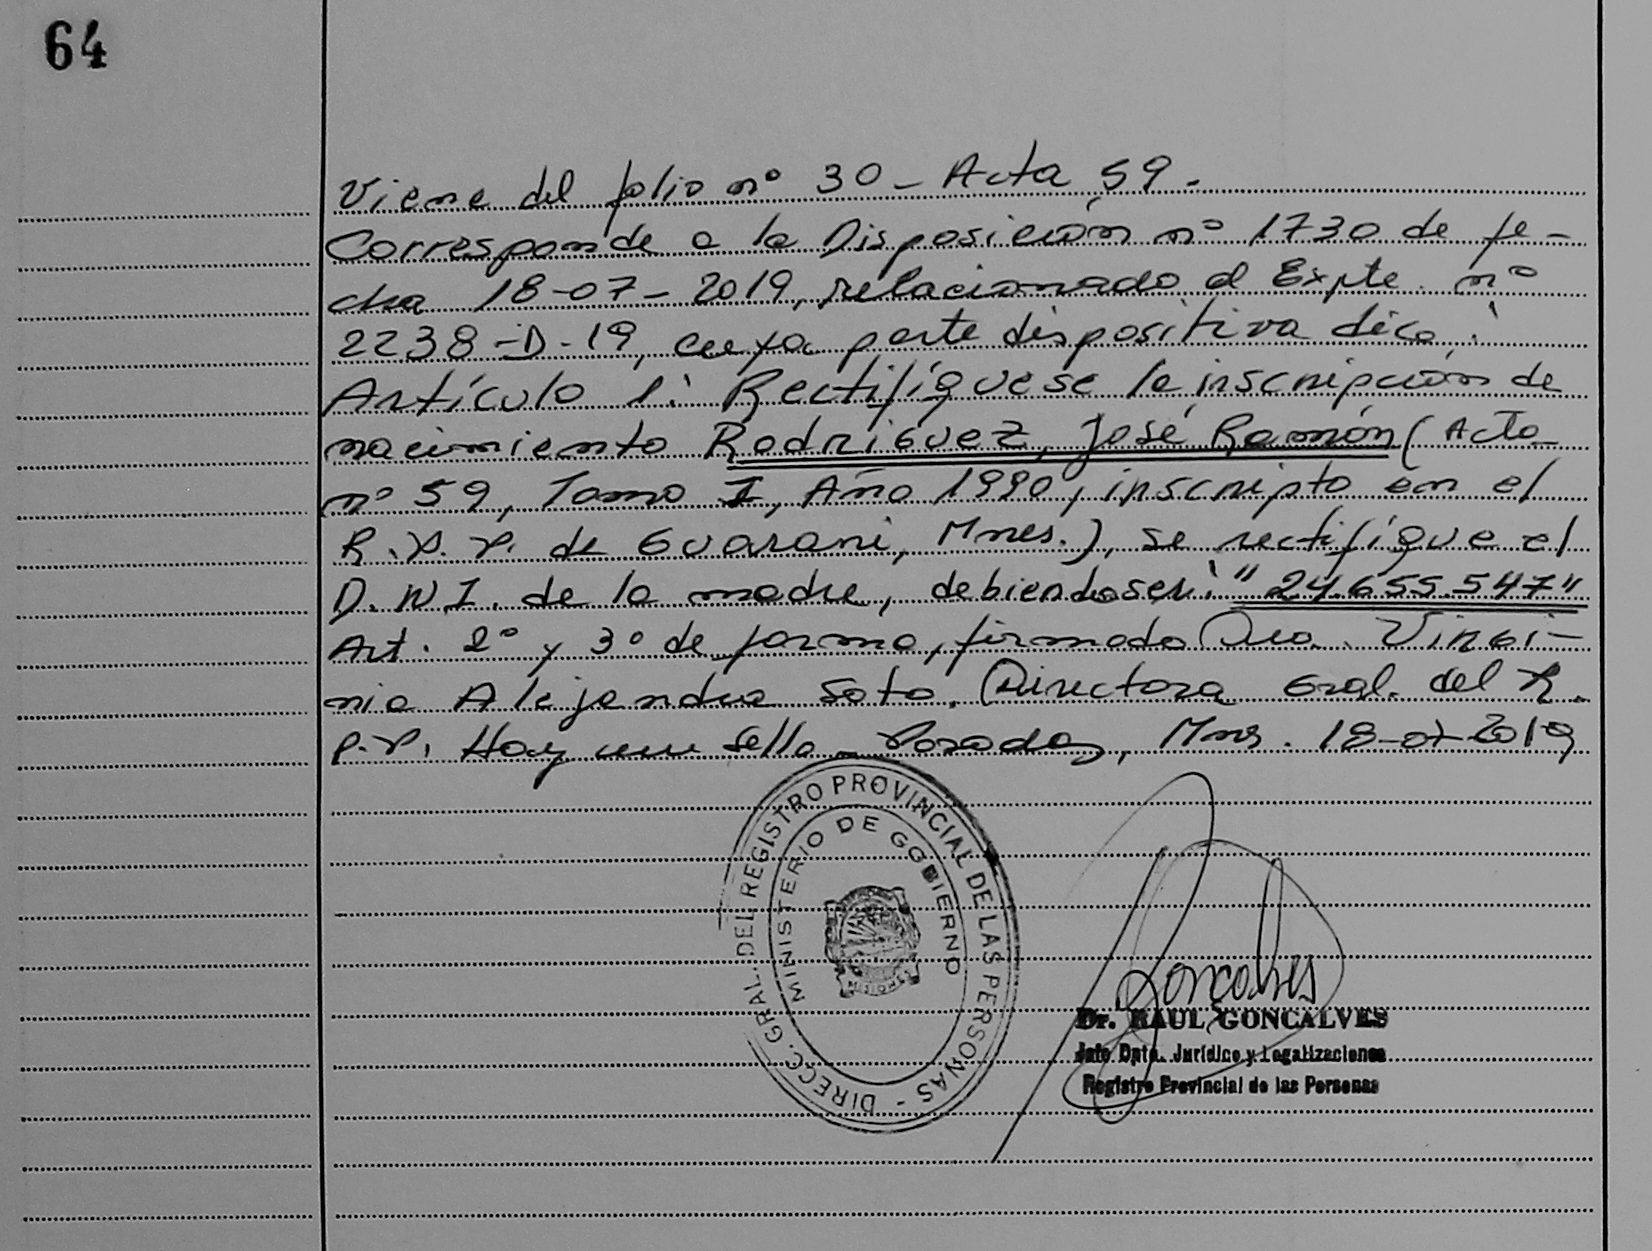 64
Viene del folio nº 30 - Acta 59.
Corresponde a la Disposición nº 1730 de fe-
cha 18-07-2019, relacionado al Expte. nº
2238-D-19, cuya parte dispositiva dice:
Artículo 1: Rectifíquese la inscripción de
nacimiento Rodriguez, José Ramón (Acta
nº 59, Tomo I, Año 1990, inscripto en el
R.P.P. de Guarani, Mnes.), se rectifique el
D.N.I. de la madre, debiendo ser: "24.655.547"
Art. 2º y 3º de forma, firmado Dra. Virgi-
nia Alejandra Soto, Directora Gral. del R.
P.P. Hay un sello - Posadas, Mns. 18-07-2019
DIRECC. GRAL. DEL REGISTRO PROVINCIAL DE LAS PERSONAS -
MINISTERIO DE GOBIERNO
Goncalves
Dr. RAUL GONCALVES
Jefe Dpto. Jurídico y Legalizaciones
Registro Provincial de las Personas